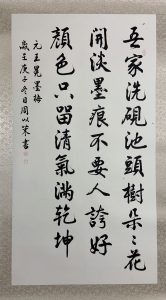 吾家洗硯池頭樹朵〻花
開淡墨痕不要人誇好
顏色只留清氣滿乾坤
元王冕墨梅
歲在庚子冬日周以策書